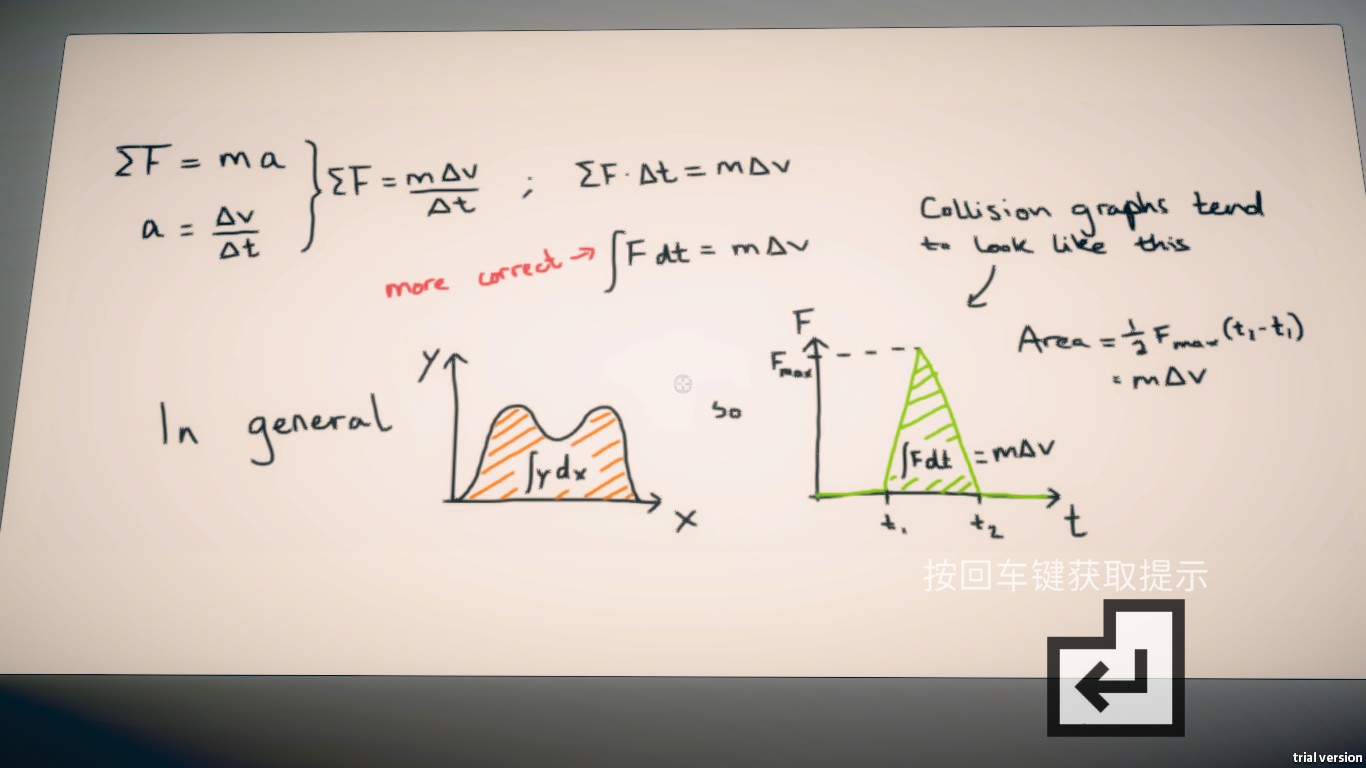 ΣF = ma
a = Δv/Δt
ΣF = mΔv/Δt ; ΣF·Δt = mΔv
more correct → ∫F dt = mΔv
Collision graphs tend
to look like this
In general
y
∫y dx
x
so
F
Fmax
∫Fdt = mΔv
t₁
t₂
t
Area = ½ Fmax (t₂-t₁)
= mΔv
按回车键获取提示
trial version